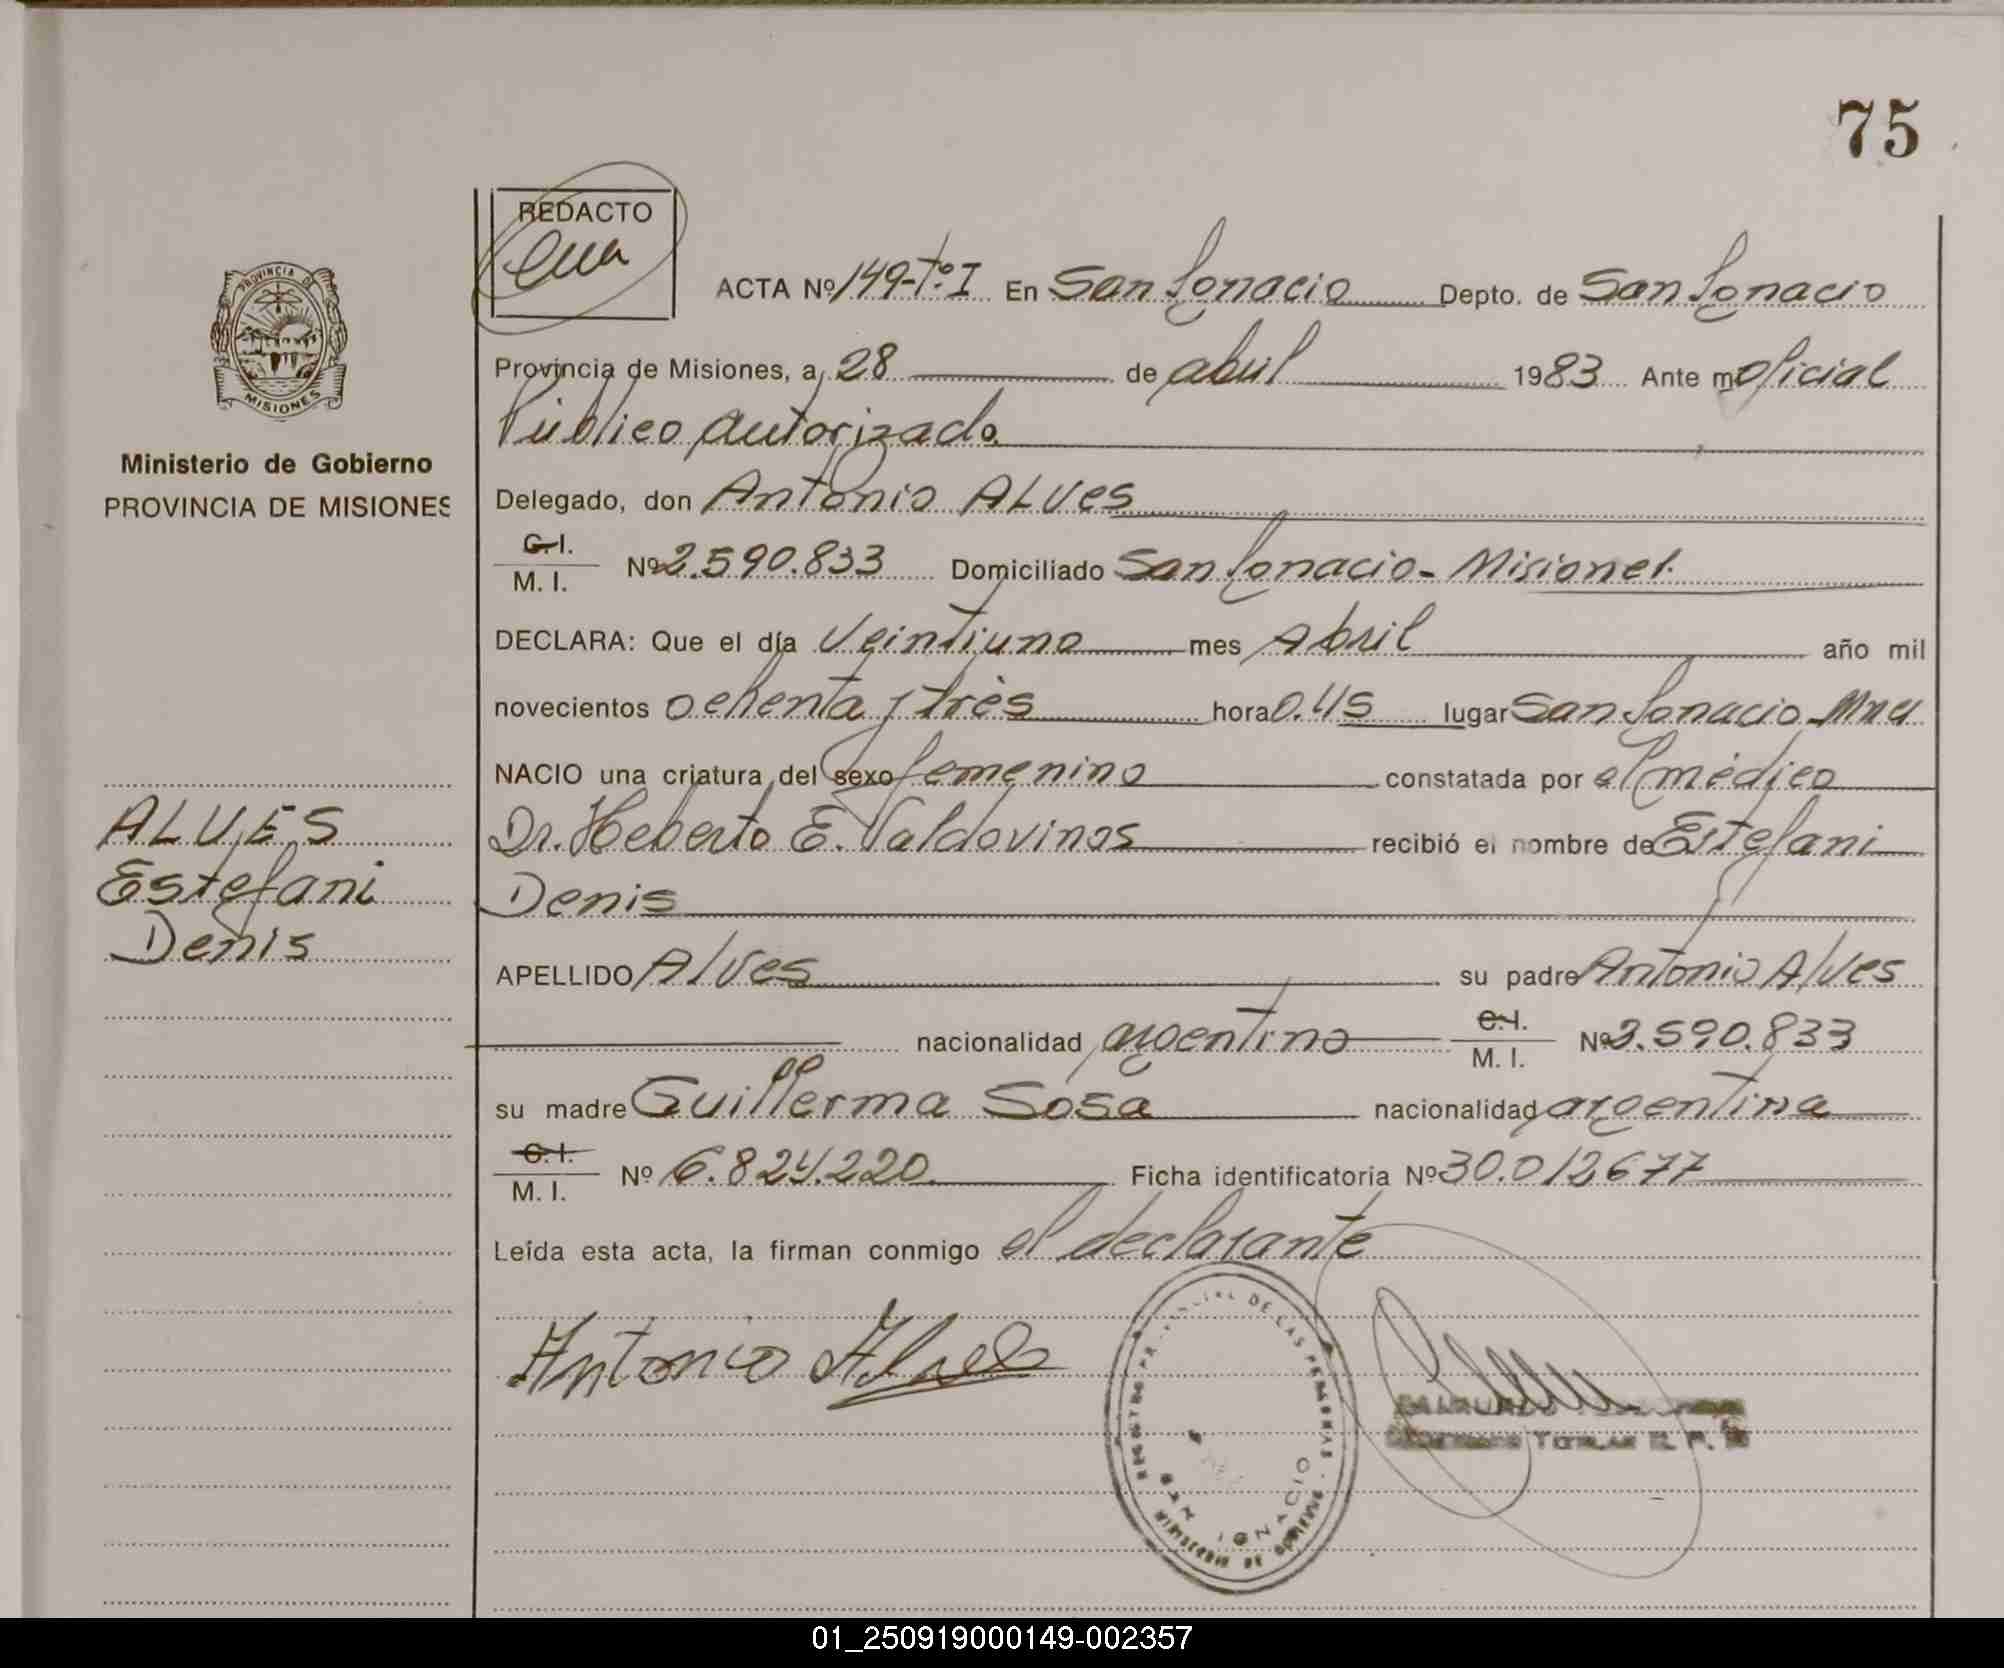 75
REDACTO
PROVINCIA DE
MISIONES
Ministerio de Gobierno
PROVINCIA DE MISIONES
ACTA Nº 149-Tº.I En San Ignacio Depto. de San Ignacio
Provincia de Misiones, a 28 de abril 1983 Ante mí Oficial
Público Autorizado
Delegado, don Antonio ALVES
C.I. M. I. Nº 2.590.833 Domiciliado San Ignacio - Misiones.
DECLARA: Que el día Veintiuno mes Abril año mil
novecientos ochenta y tres hora 0.45 lugar San Ignacio Mnes
NACIO una criatura del sexo femenino constatada por el médico
Dr. Heberto E. Valdovinos recibió el nombre de Estefani
Denis
ALVES
Estefani
Denis
APELLIDO Alves su padre Antonio Alves
nacionalidad argentino C.I. M. I. Nº 2.590.833
su madre Guillerma Sosa nacionalidad argentina
C.I. M. I. Nº 6.824.220. Ficha identificatoria Nº 30.012677
Leída esta acta, la firman conmigo el declarante
Antonio Alves
REGISTRO PROVINCIAL DE LAS PERSONAS
SAN IGNACIO
MINISTERIO DE GOBIERNO
TITULAR R. P.
01_250919000149-002357